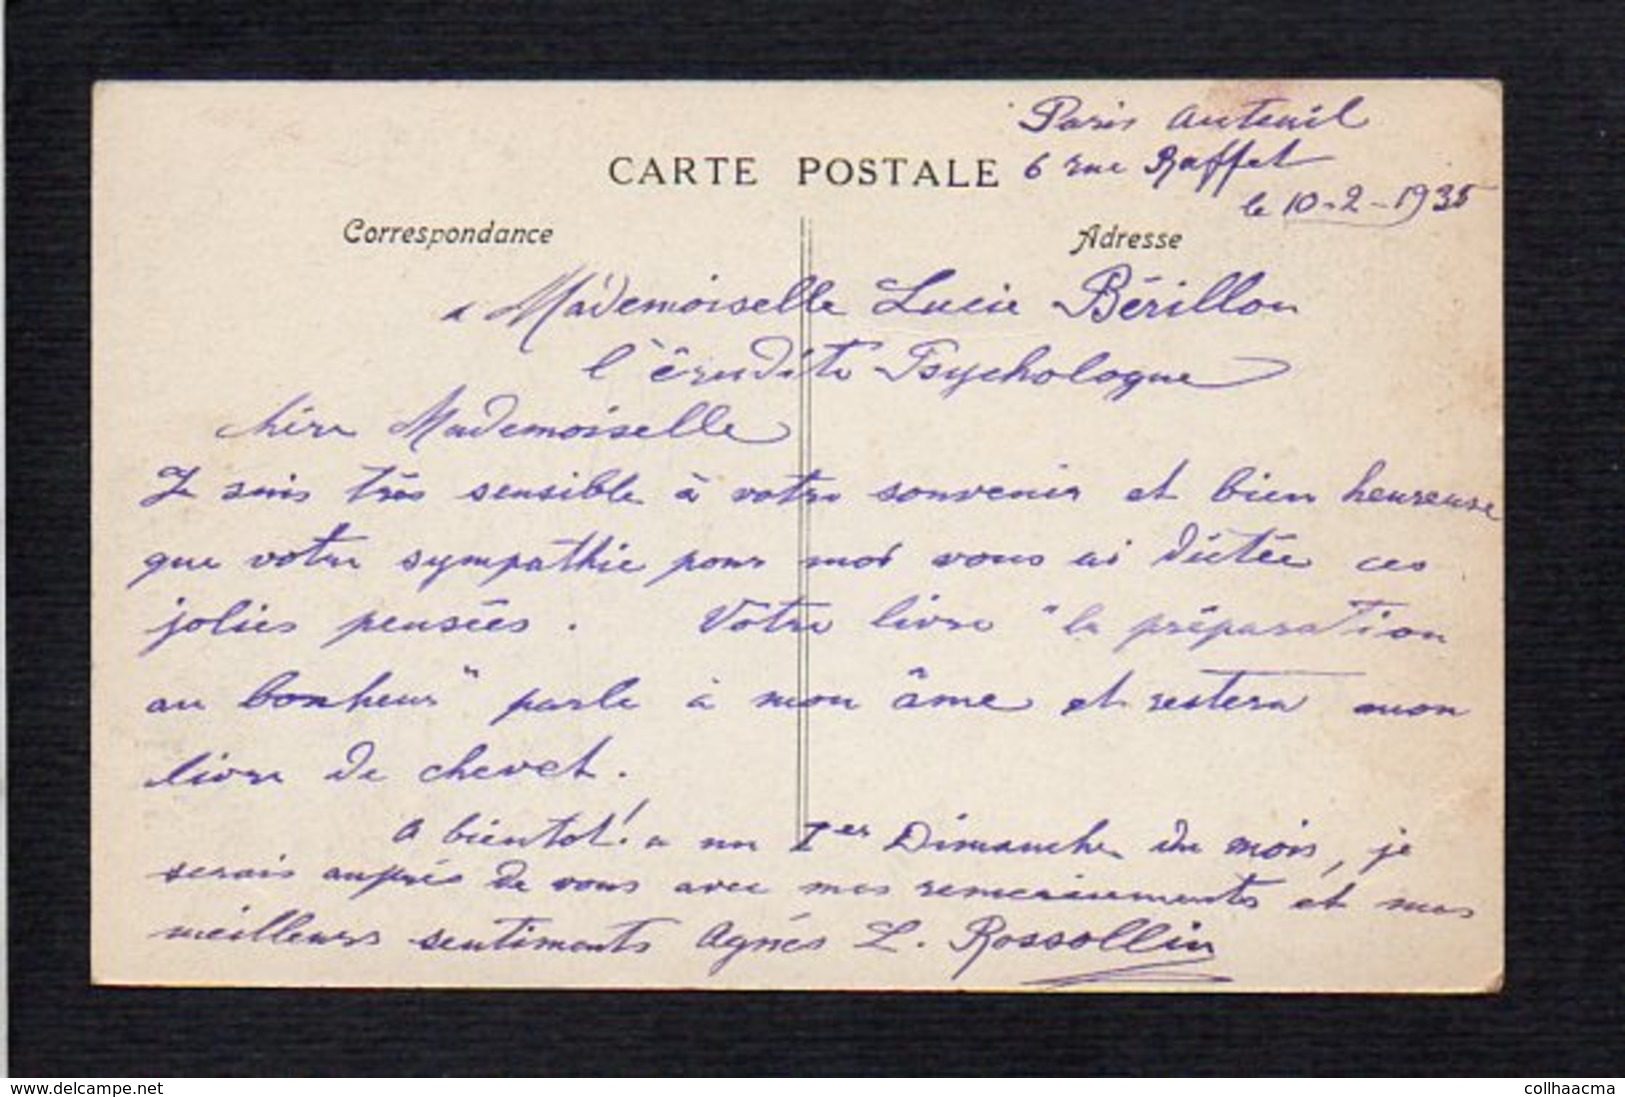 Paris Auteuil
CARTE POSTALE
6 rue Raffet
le 10-2-1935
Correspondance
Adresse
a Mademoiselle Lucie Bérillon
l'érudite Psychologue
chère Mademoiselle
Je suis très sensible à votre souvenir et bien heureuse
que votre sympathie pour moi vous ai dictée ces
jolies pensées. Votre livre "la préparation
au bonheur" parle à mon âme et restera mon
livre de chevet.
A bientot! a un 1er Dimanche du mois, je
serais auprès de vous avec mes remerciements et mes
meilleurs sentiments Agnès L. Rossollin
www.delcampe.net
collhaacma